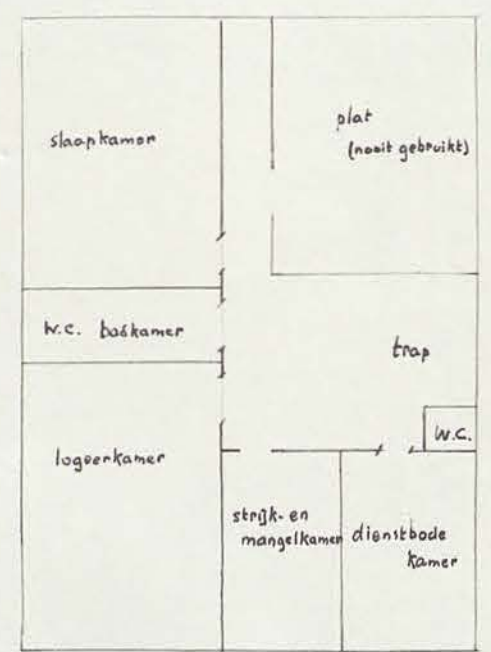 slaapkamer
plat
(nooit gebruikt)
W.C. badkamer
trap
W.C.
logeerkamer
strijk- en
mangelkamer
dienstbode
kamer